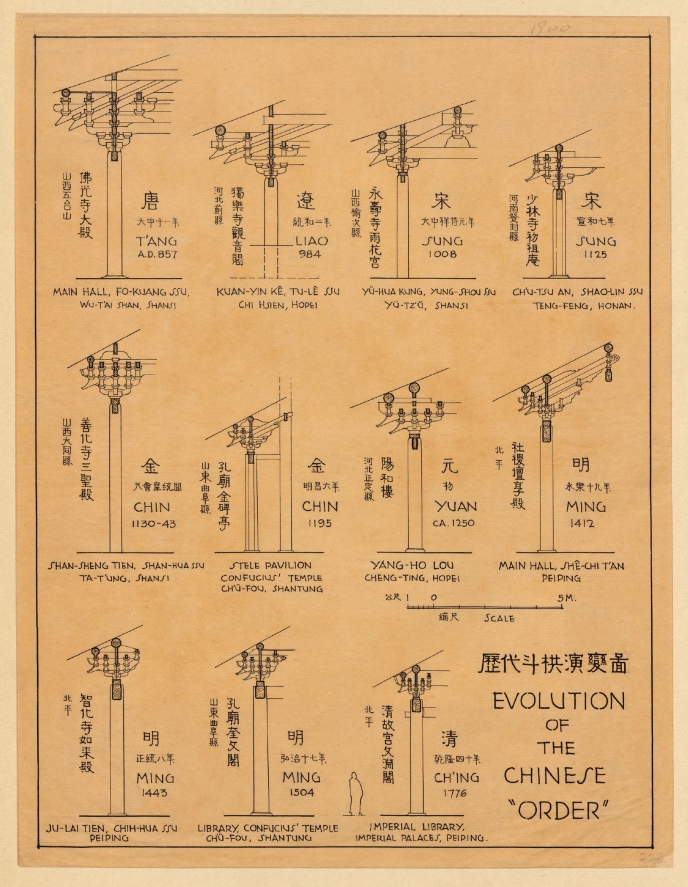 1900
佛光寺大殿
山西五台山
唐
大中十一年
T'ANG
A.D. 857
MAIN HALL, FO-KUANG SSU,
WU-T'AI SHAN, SHANSI
獨樂寺觀音閣
河北薊縣
遼
統和二年
LIAO
984
KUAN-YIN KÊ, TU-LÊ SSU
CHI HSIEN, HOPEI
永壽寺雨花宮
山西榆次縣
宋
大中祥符元年
SUNG
1008
YÜ-HUA KUNG, YUNG-SHOU SSU
YÜ-TZ'Ŭ, SHANSI
少林寺初祖庵
河南登封縣
宋
宣和七年
SUNG
1125
CH'U-TSU AN, SHAO-LIN SSU
TENG-FENG, HONAN.
善化寺三聖殿
山西大同縣
金
天會皇統間
CHIN
1130-43
SHAN-SHENG TIEN, SHAN-HUA SSU
TA-T'UNG, SHANSI
孔廟金碑亭
山東曲阜縣
金
明昌六年
CHIN
1195
STELE PAVILION
CONFUCIUS' TEMPLE
CH'Ü-FOU, SHANTUNG
陽和樓
河北正定縣
元
初
YUAN
CA. 1250
YANG-HO LOU
CHENG-TING, HOPEI
社稷壇享殿
北平
明
永樂十九年
MING
1412
MAIN HALL, SHÊ-CHI T'AN
PEIPING
公尺 1 0 5 M.
縮尺 SCALE
智化寺如来殿
北平
明
正統八年
MING
1443
JU-LAI TIEN, CHIH-HUA SSU
PEIPING
孔廟奎文閣
山東曲阜縣
明
弘治十七年
MING
1504
LIBRARY, CONFUCIUS' TEMPLE
CH'Ü-FOU, SHANTUNG
清故宮文淵閣
北平
清
乾隆四十年
CH'ING
1776
IMPERIAL LIBRARY,
IMPERIAL PALACES, PEIPING.
歷代斗栱演變圖
EVOLUTION
OF
THE
CHINESE
"ORDER"